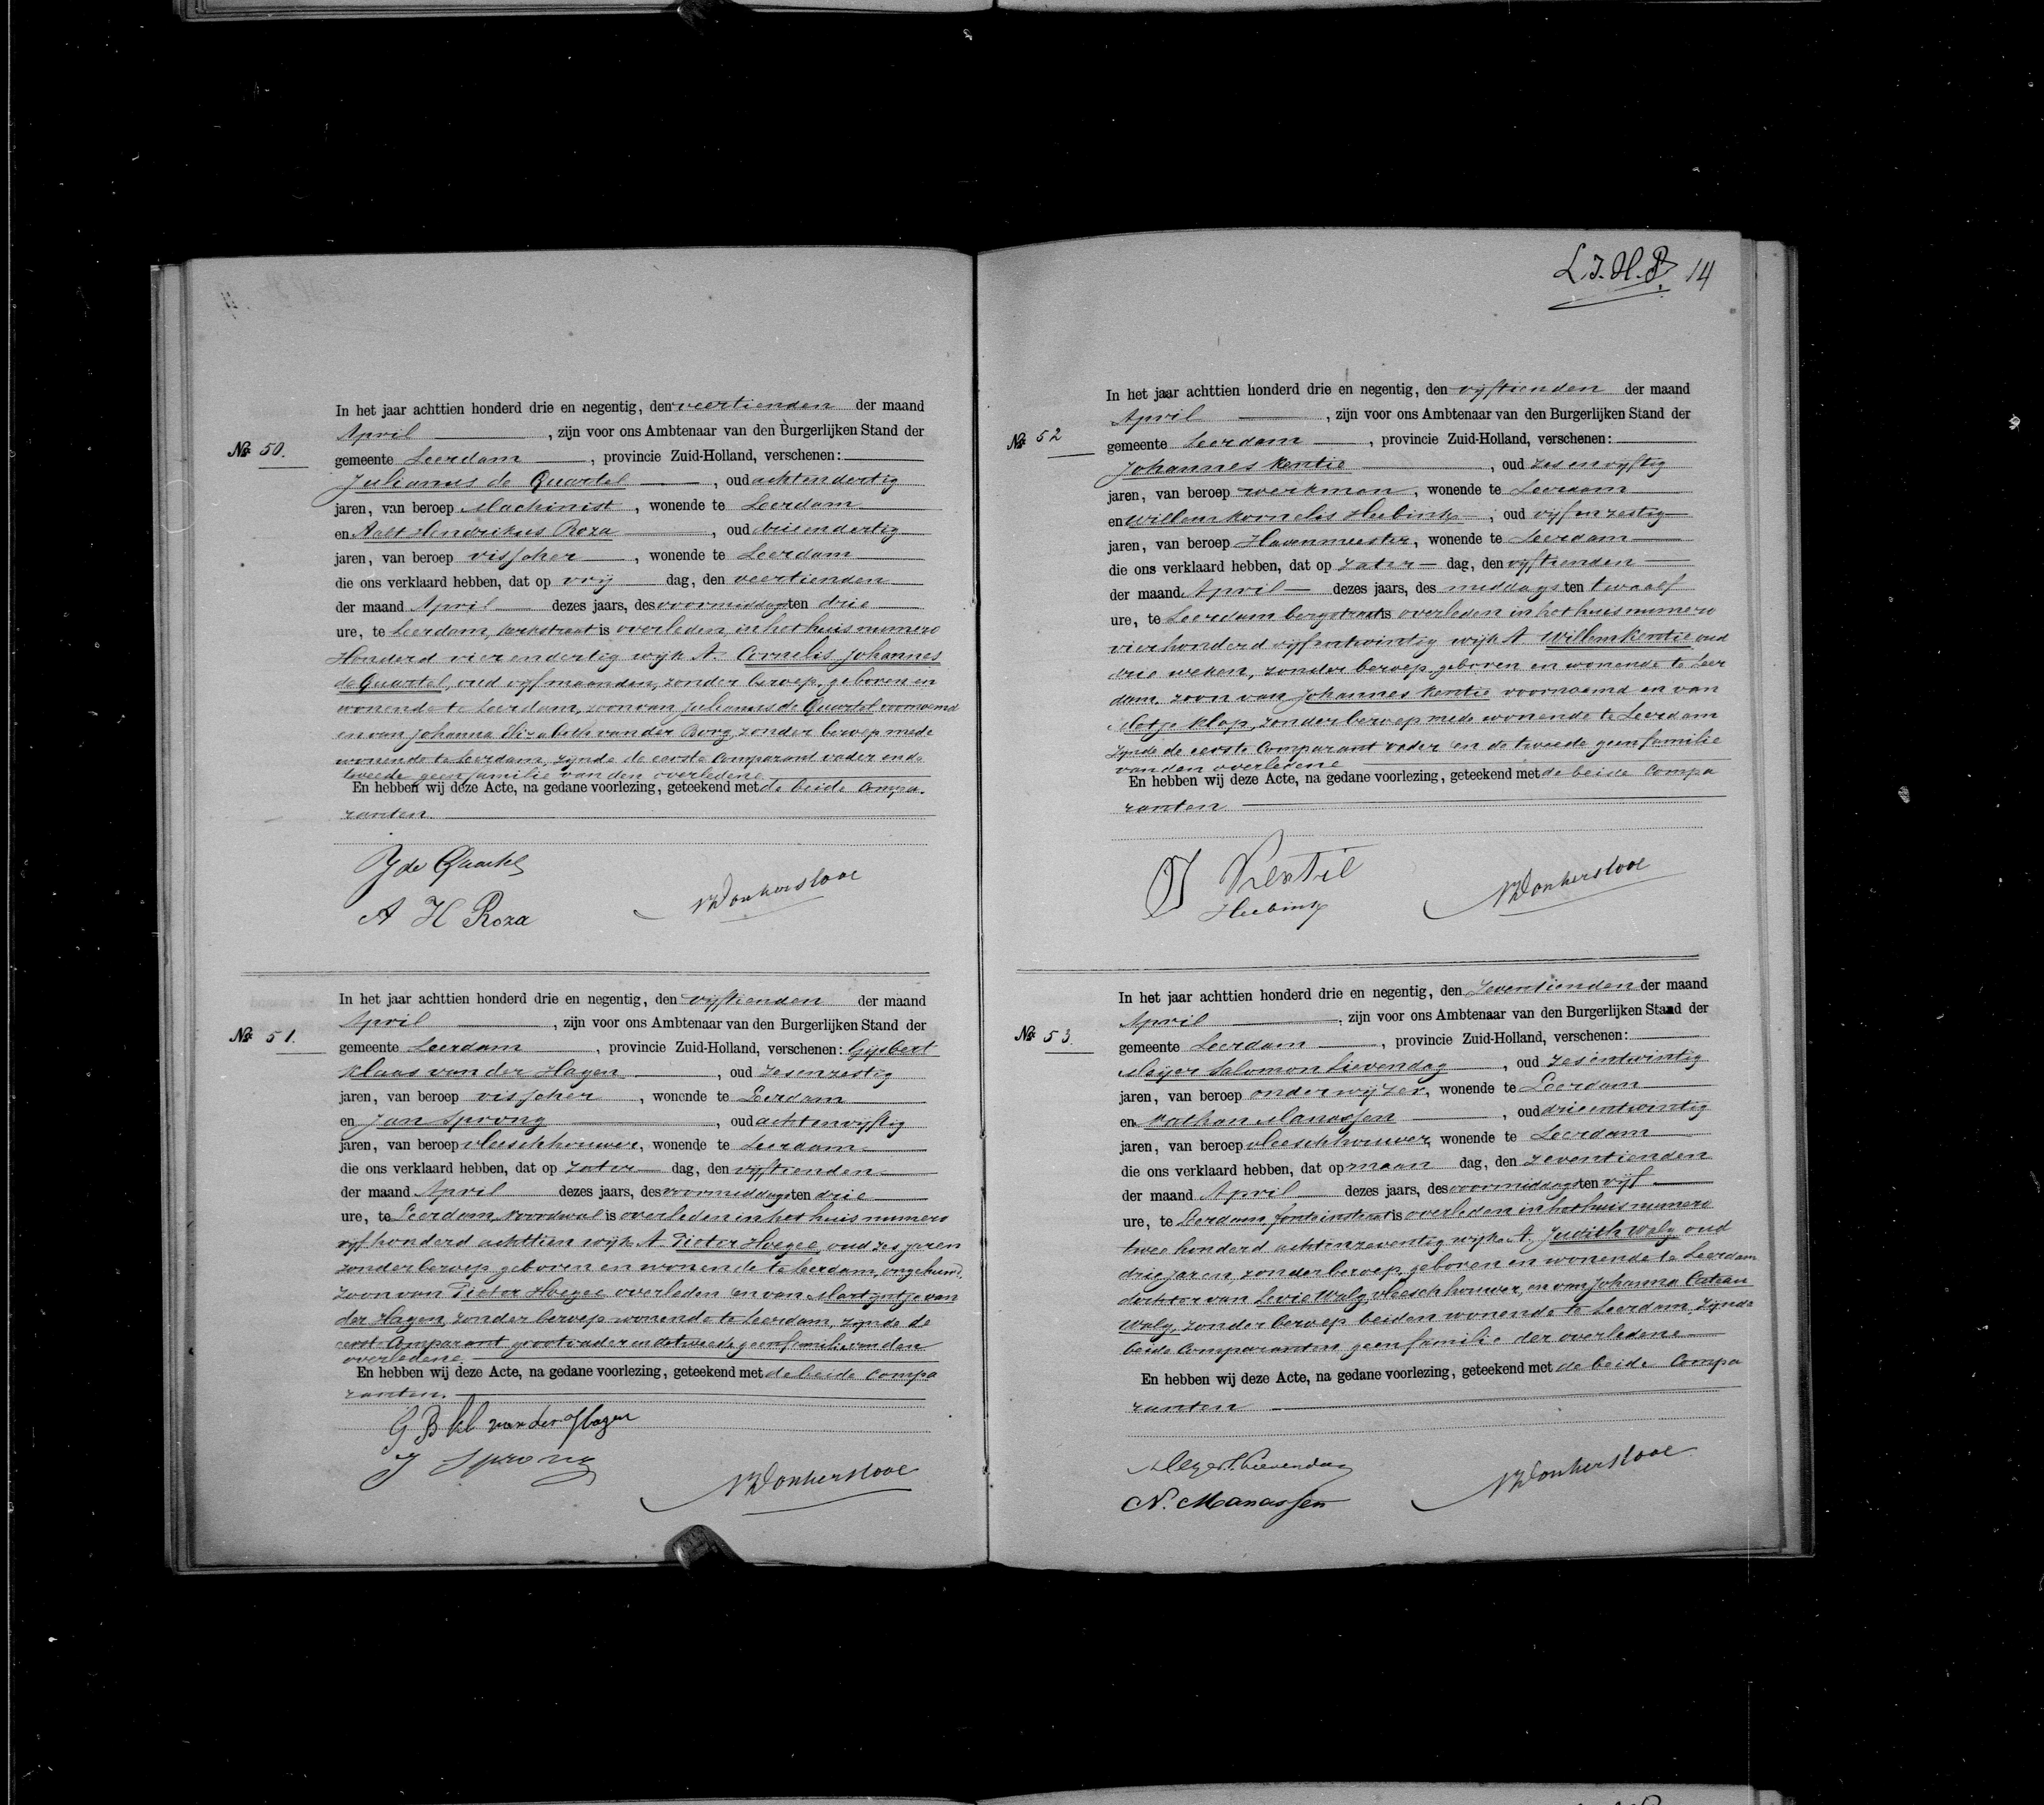 No 50.
In het jaar achttien honderd drie en negentig, den veertienden der maand
April , zijn voor ons Ambtenaar van den Burgerlijken Stand der
gemeente Leerdam , provincie Zuid-Holland, verschenen:
Julianus de Quartel , oud achtendertig
jaren, van beroep Machinist , wonende te Leerdam
en Aalt Hendrikus Roza , oud drieendertig
jaren, van beroep visscher , wonende te Leerdam
die ons verklaard hebben, dat op vrij dag, den veertienden
der maand April dezes jaars, des voormiddags ten drie
ure, te Leerdam, kerkstraat is overleden, in het huis numero
Honderd vierendertig wijk A. Cornelis Johannes
de Quartel, oud vijf maanden, zonder beroep, geboren en
wonende te Leerdam, zoon van Julianus de Quartel voornoemd
en van Johanna Elizabeth van der Borg, zonder beroep mede
wonende te Leerdam, zynde de eerste Comparant vader en de
tweede geen familie van den overledene
En hebben wij deze Acte, na gedane voorlezing, geteekend met de beide Compa-
ranten.
J de Quartel
A H Roza
Donkersloot
No 51.
In het jaar achttien honderd drie en negentig, den vijftienden der maand
April , zijn voor ons Ambtenaar van den Burgerlijken Stand der
gemeente Leerdam , provincie Zuid-Holland, verschenen: Gijsbert
Klaas van der Hagen , oud zesenzestig
jaren, van beroep visscher , wonende te Leerdam
en Jan Sprong , oud achtenvijftig
jaren, van beroep vleeschhouwer, wonende te Leerdam
die ons verklaard hebben, dat op zater dag, den vijftienden
der maand April dezes jaars, des voormiddags ten drie
ure, te Leerdam, Noordwal is overleden in het huis numero
vijfhonderd achttien wijk A. Pieter Hoegee, oud zes jaren
zonder beroep geboren en wonende te Leerdam, ongehuwd,
zoon van Pieter Hoegee overleden en van Martyntje van
der Hagen, zonder beroep wonende te Leerdam, zynde de
eerst Comparant grootvader en de tweede geen familie van den
overledene
En hebben wij deze Acte, na gedane voorlezing, geteekend met de beide Compa
ranten.
G B kl van der Hagen
J Sprong
Donkersloot
L.J.H.P. 14
No 52
In het jaar achttien honderd drie en negentig, den vijftienden der maand
April , zijn voor ons Ambtenaar van den Burgerlijken Stand der
gemeente Leerdam , provincie Zuid-Holland, verschenen:
Johannes Kentie , oud zesenvijftig
jaren, van beroep werkman , wonende te Leerdam
en Willem Kornelis Heebink , oud vijfenzestig
jaren, van beroep Havenmeester, wonende te Leerdam
die ons verklaard hebben, dat op zater dag, den vijftienden
der maand April dezes jaars, des middags ten twaalf
ure, te Leerdam bergstraat is overleden in het huis numero
vierhonderd vijfentwintig wijk A Willem Kentie oud
drie weken, zonder beroep, geboren en wonende te Leer
dam, zoon van Johannes Kentie voornoemd en van
Klop, zonder beroep mede wonende te Leerdam
zynde de eerste Comparant vader en de tweede geen familie
van den overledene
En hebben wij deze Acte, na gedane voorlezing, geteekend met de beide Compa
ranten
J Kentie
Heebink
Donkersloot
No 53.
In het jaar achttien honderd drie en negentig, den Zeventienden der maand
April , zijn voor ons Ambtenaar van den Burgerlijken Stand der
gemeente Leerdam , provincie Zuid-Holland, verschenen:
Meijer Salomon Lievendag , oud zesentwintig
jaren, van beroep onderwijzer, wonende te Leerdam
en Nathan Manassen , oud drieentwintig
jaren, van beroep vleeschhouwer, wonende te Leerdam
die ons verklaard hebben, dat op maan dag, den zeventienden
der maand April dezes jaars, des voormiddags ten vijf
ure, te Leerdam fonteinstraat is overleden in het huis numero
twee honderd achtenzeventig wijk A. Judith Walg oud
drie jaren, zonder beroep, geboren en wonende te Leerdam
dochter van Levie Walg vleeschhouwer, en van Johanna Cateau
Walg, zonder beroep beiden wonende te Leerdam, zynde
beide Comparanten geen familie der overledene
En hebben wij deze Acte, na gedane voorlezing, geteekend met de beide Compa
ranten
Meyer S. Lievendag
N. Manassen
Donkersloot